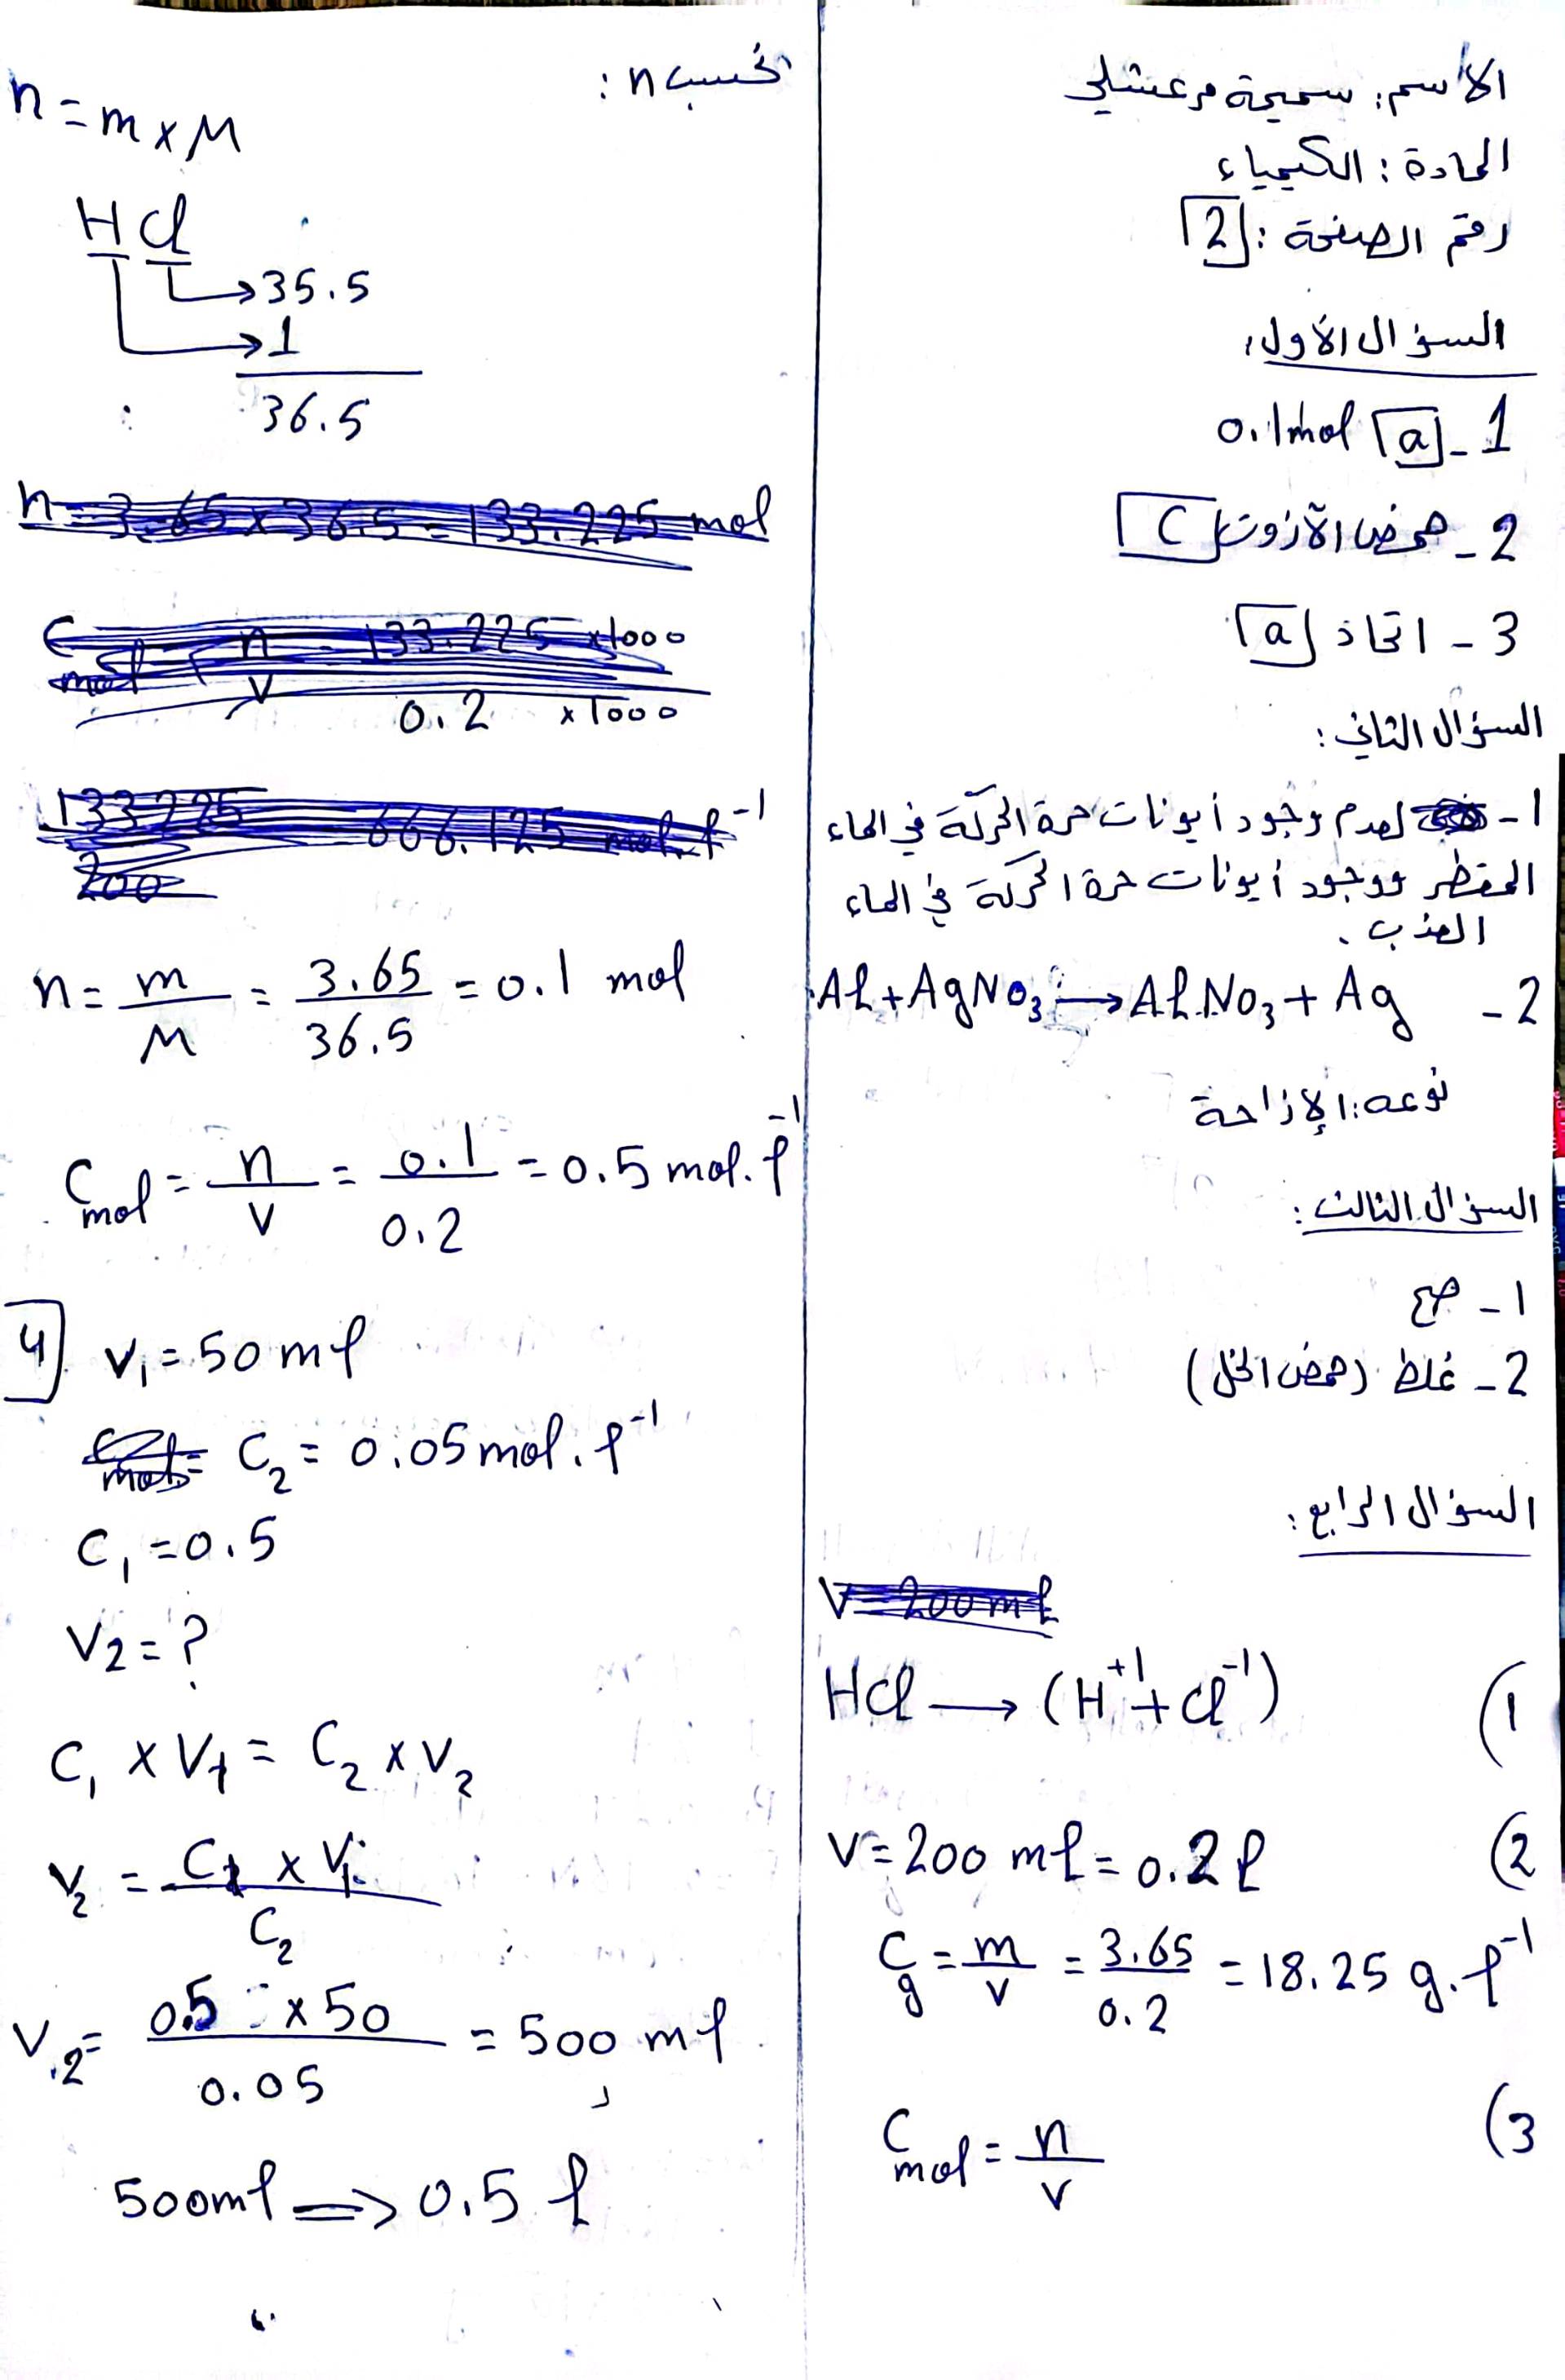 الاسم: سميحة مرعشلي
المادة: الكيمياء
رقم الصفحة: 2
السؤال الأول:
1- a 0.1mol
2- حمض الآزوت c
3- اتحاد a
السؤال الثاني:
1- لعدم وجود أيونات حرة الحركة في الماء
المقطر ووجود أيونات حرة الحركة في الماء
العذب.
2- Al + AgNO₃ → AlNO₃ + Ag
نوعه: الإزاحة
السؤال الثالث:
1- صح
2- غلط (حمض الخل)
السؤال الرابع:
V = 200 ml
1) HCl → (H⁺¹ + Cl⁻¹)
2) V = 200 ml = 0.2 l
Cg = m/v = 3.65/0.2 = 18.25 g.l⁻¹
3) Cmol = n/v
نحسب n:
n = m × M
HCl
→ 35.5
→ 1
36.5
n = 3.65 × 36.5 = 133.225 mol
Cmol = n/v = 133.225 ×1000 / 0.2 ×1000
133225/200 = 666.125 mol.l⁻¹
n = m/M = 3.65/36.5 = 0.1 mol
Cmol = n/v = 0.1/0.2 = 0.5 mol.l⁻¹
4 V₁ = 50 ml
C₂ = 0.05 mol.l⁻¹
C₁ = 0.5
V2 = ?
C₁ × V₁ = C₂ × V₂
V₂ = C₁ × V₁ / C₂
V₂ = 0.5 × 50 / 0.05 = 500 ml
500ml ⇒ 0.5 l